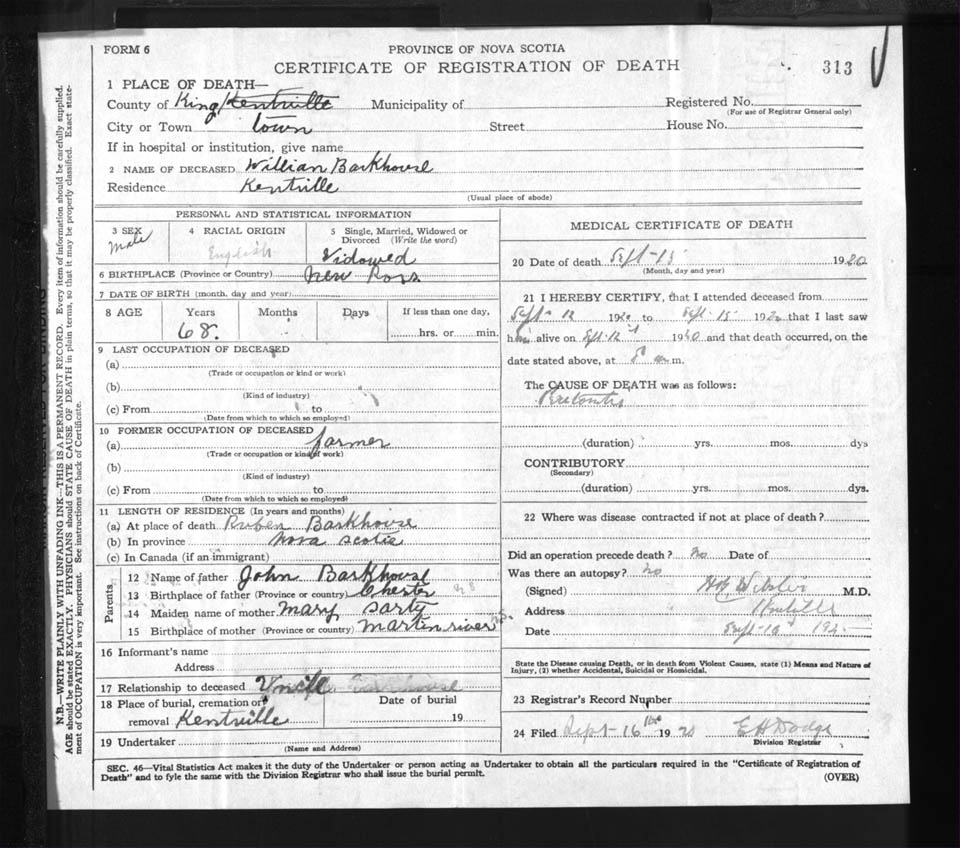 FORM 6
PROVINCE OF NOVA SCOTIA
CERTIFICATE OF REGISTRATION OF DEATH
313
1 PLACE OF DEATH—
County of King/Kentville Municipality of Registered No.
(For use of Registrar General only)
City or Town town Street House No.
If in hospital or institution, give name
2 NAME OF DECEASED William Barkhouse
Residence Kentville
(Usual place of abode)
PERSONAL AND STATISTICAL INFORMATION
3 SEX Male
4 RACIAL ORIGIN English
5 Single, Married, Widowed or Divorced (Write the word)
Widowed
6 BIRTHPLACE (Province or Country) New Ross
7 DATE OF BIRTH (month, day and year)
8 AGE Years Months Days If less than one day,
68. hrs. or min.
9 LAST OCCUPATION OF DECEASED
(a)
(Trade or occupation or kind or work)
(b)
(Kind of industry)
(c) From to
(Date from which to which so employed)
10 FORMER OCCUPATION OF DECEASED
(a) farmer
(Trade or occupation or kind of work)
(b)
(Kind of industry)
(c) From to
(Date from which to which so employed)
11 LENGTH OF RESIDENCE (In years and months)
(a) At place of death Ruben Barkhouse
(b) In province Nova Scotia
(c) In Canada (if an immigrant)
Parents
12 Name of father John Barkhouse
13 Birthplace of father (Province or country) Chester
14 Maiden name of mother Mary Sarty
15 Birthplace of mother (Province or country) Martin rivers N.S.
16 Informant's name
Address
17 Relationship to deceased Uncle
18 Place of burial, cremation or removal Kentville
Date of burial
19
19 Undertaker
(Name and Address)
MEDICAL CERTIFICATE OF DEATH
20 Date of death Sept-15 1920
(Month, day and year)
21 I HEREBY CERTIFY, that I attended deceased from
Sept-12 1920 to Sept-15 1920 that I last saw
him alive on Sept-12 1920 and that death occurred, on the
date stated above, at 8 a m.
The CAUSE OF DEATH was as follows:
(duration) yrs. mos. dys
CONTRIBUTORY
(Secondary)
(duration) yrs. mos. dys.
22 Where was disease contracted if not at place of death?
Did an operation precede death? No Date of
Was there an autopsy? No
(Signed) Webster M.D.
Address Kentville
Date Sept-
State the Disease causing Death, or in death from Violent Causes, state (1) Means and Nature of
Injury, (2) whether Accidental, Suicidal or Homicidal.
23 Registrar's Record Number
24 Filed Sept-16th 1920 E H Dodge
Division Registrar
SEC. 46—Vital Statistics Act makes it the duty of the Undertaker or person acting as Undertaker to obtain all the particulars required in the "Certificate of Registration of
Death" and to fyle the same with the Division Registrar who shall issue the burial permit.
(OVER)
N.B.—WRITE PLAINLY WITH UNFADING INK—THIS IS A PERMANENT RECORD. Every item of information should be carefully supplied.
AGE should be stated EXACTLY. PHYSICIANS should STATE CAUSE OF DEATH in plain terms, so that it may be properly classified. Exact state-
ment of OCCUPATION is very important. See instructions on back of Certificate.